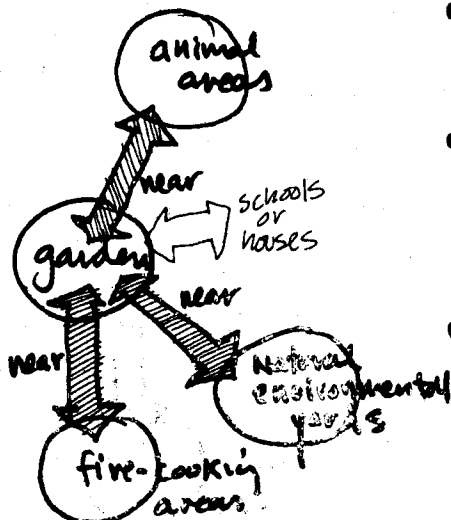 animal
areas
near
schools
or
houses
garden
near
near
Natural
environmental
yards
fire-cooking
areas